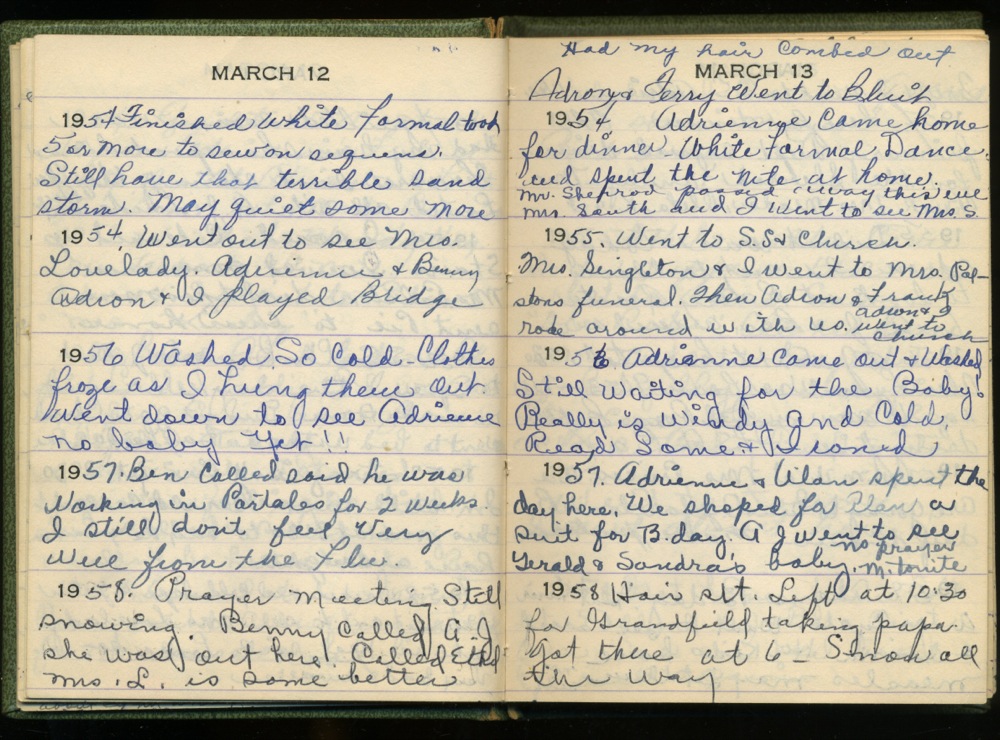 MARCH 12
1954 Finished White Formal took
5 or more to sew on sequens.
Still have that terrible sand
storm. May quiet some more
1954, Went out to see Mrs.
Lovelady. Adrienne & Benny
Adron & I played Bridge
1956 Washed So Cold - Clothes
froze as I hung them out.
Went down to see Adrienne
no baby yet!!
1957. Ben called said he was
Working in Portales for 2 weeks.
I still don't feel Very
well from the Flu.
1958. Prayer meeting. Still
snowing. Benny called A.J.
she was out here. Called Ethel
Mrs. L. is some better
Had my hair combed out
MARCH 13
Adron & Jerry Went to Bluit
1954 Adrienne Came home
for dinner - White Formal Dance.
and spent the nite at home.
Mr. Sheprod passed away this eve
Mrs. South and I Went to see Mrs S.
1955. Went to S.S & Church.
Mrs. Singleton & I went to Mrs. Pal-
stons funeral. Then Adron & Frank
rode around with us. Adron & I
went to
Church
1956 Adrianne came out & Washed
Still Waiting for the Baby!
Really is Windy and Cold.
Read Some & Ironed
1957. Adrienne & Alan spent the
day here. We shoped for Alan a
suit for B.day. A J went to see
Gerald & Sandra's baby. no prayer
m. tonite
1958 Hair set. Left at 10:30
for Grandfield taking papa.
Got there at 6 - Snow all
the way